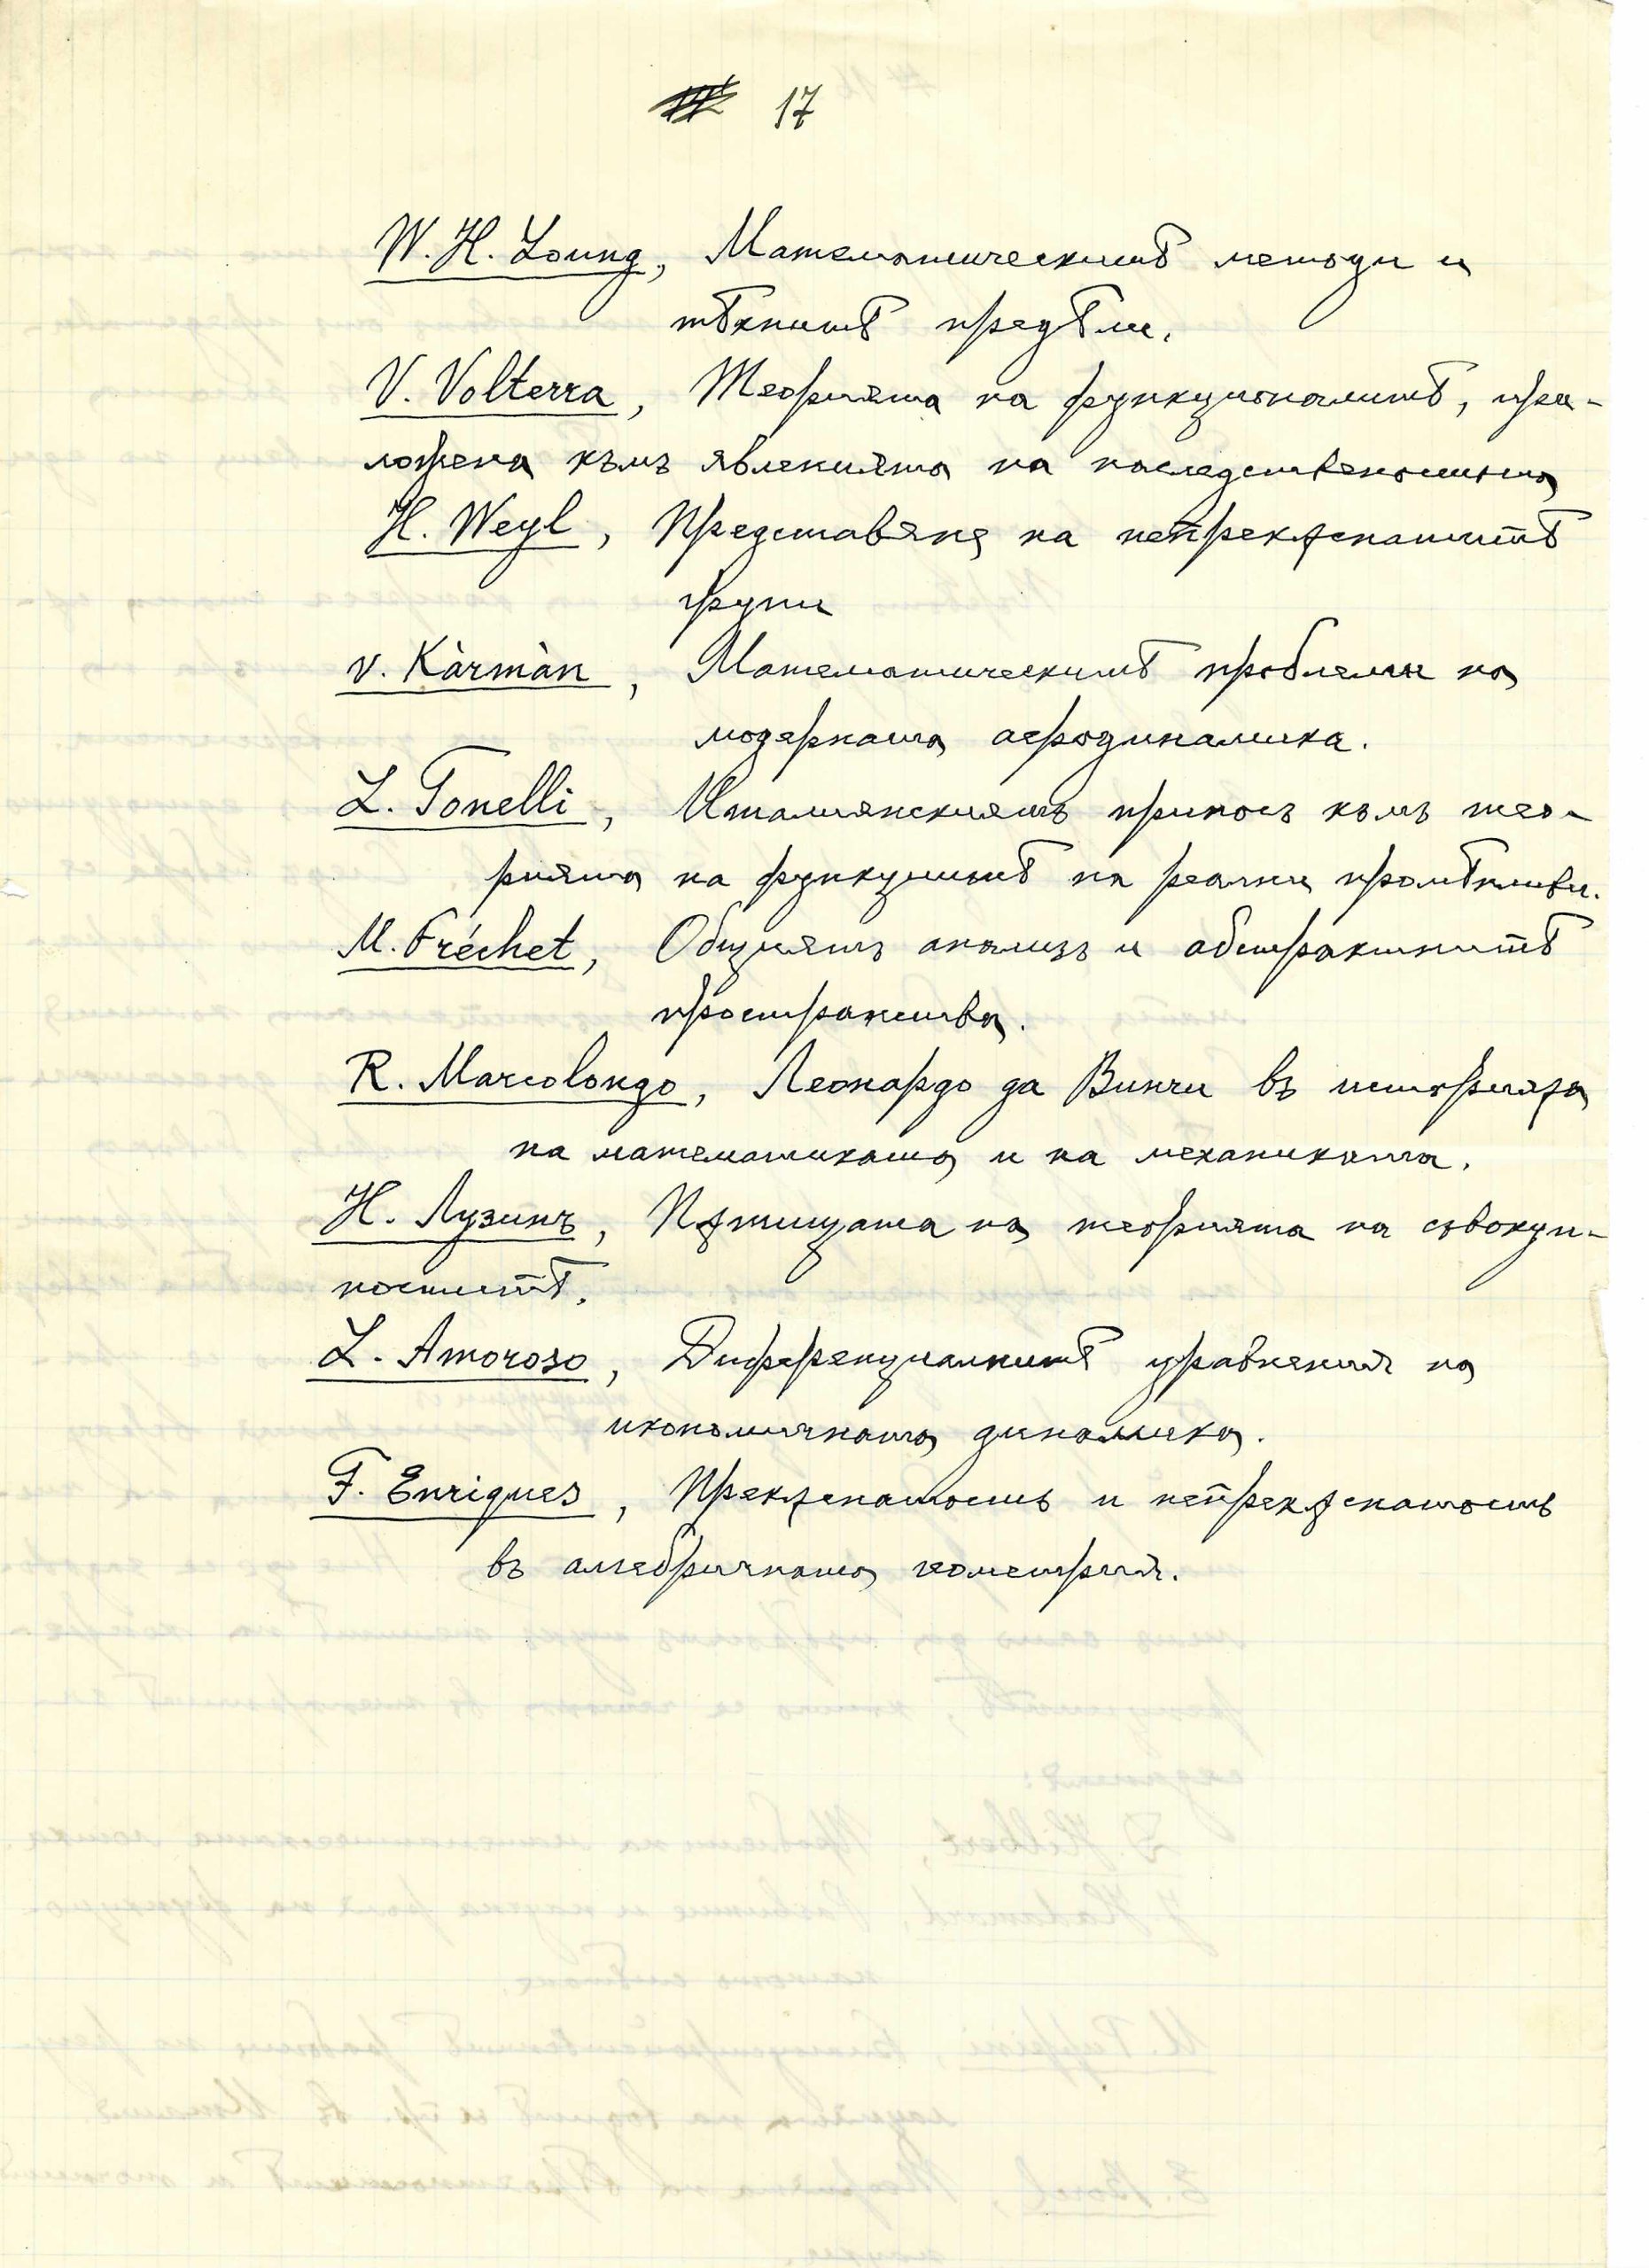 17
W. H. Young, Математическитѣ методи и
тѣхнитѣ предѣли.
V. Volterra, Теорията на функционалитѣ, при-
ложена къмъ явленията на наследствеността
H. Weyl, Представяне на непрекѫснатитѣ
групи
v. Kàrmàn, Математическитѣ проблеми на
модерната аеродинамика.
L. Tonelli, Италиянскиятъ приносъ къмъ тео-
рията на функциитѣ на реални промѣнливи.
M. Fréchet, Общиятъ анализъ и абстрактнитѣ
пространства.
R. Marcolongo, Леонардо да Винчи въ историята
на математиката и на механиката.
Н. Лузинъ, Пѫтищата на теорията на съвокуп-
ноститѣ.
L. Amoroso, Диференциалнитѣ уравнения на
икономичната динамика.
F. Enriques, Прекѫснатость и непрекѫснатость
въ алгебричната геометрия.